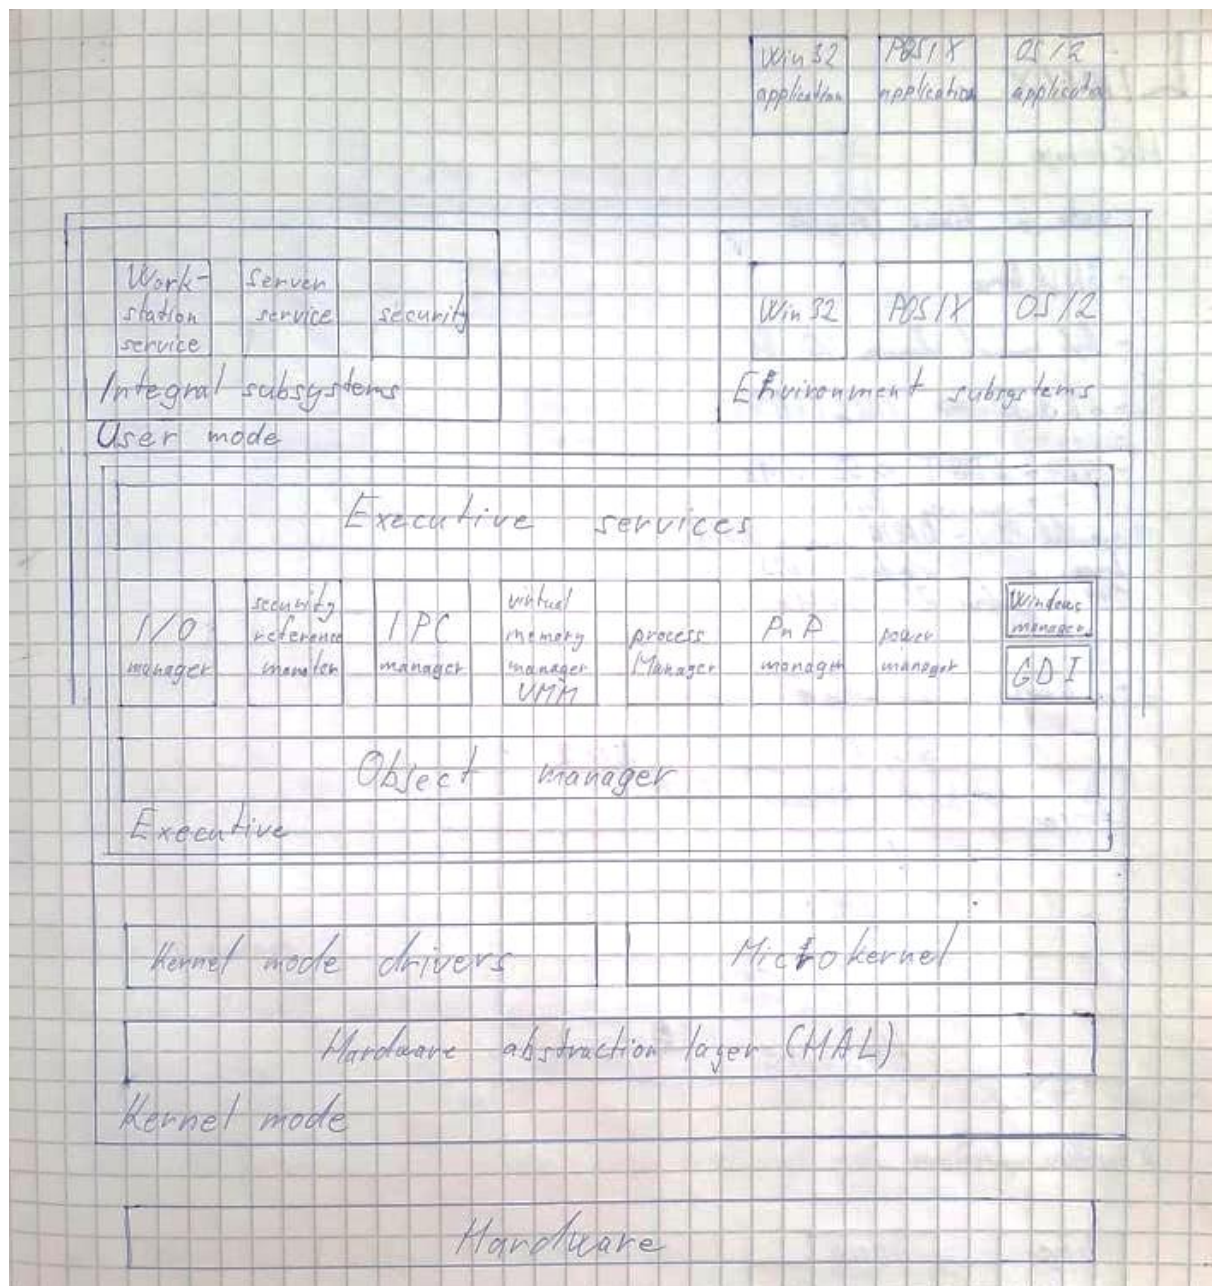 Win 32
application
POSIX
application
OS/2
applicatio
Work-
station
service
Server
service
security
Integral subsystems
Win 32
POSIX
OS/2
Environment subsystems
User mode
Executive services
I/O
manager
security
reference
monitor
IPC
manager
virtual
memory
manager
VMM
process
Manager
PnP
manager
power
manager
Windows
manager
GDI
Object manager
Executive
Kernel mode drivers
Microkernel
Hardware abstraction layer (HAL)
Kernel mode
Hardware